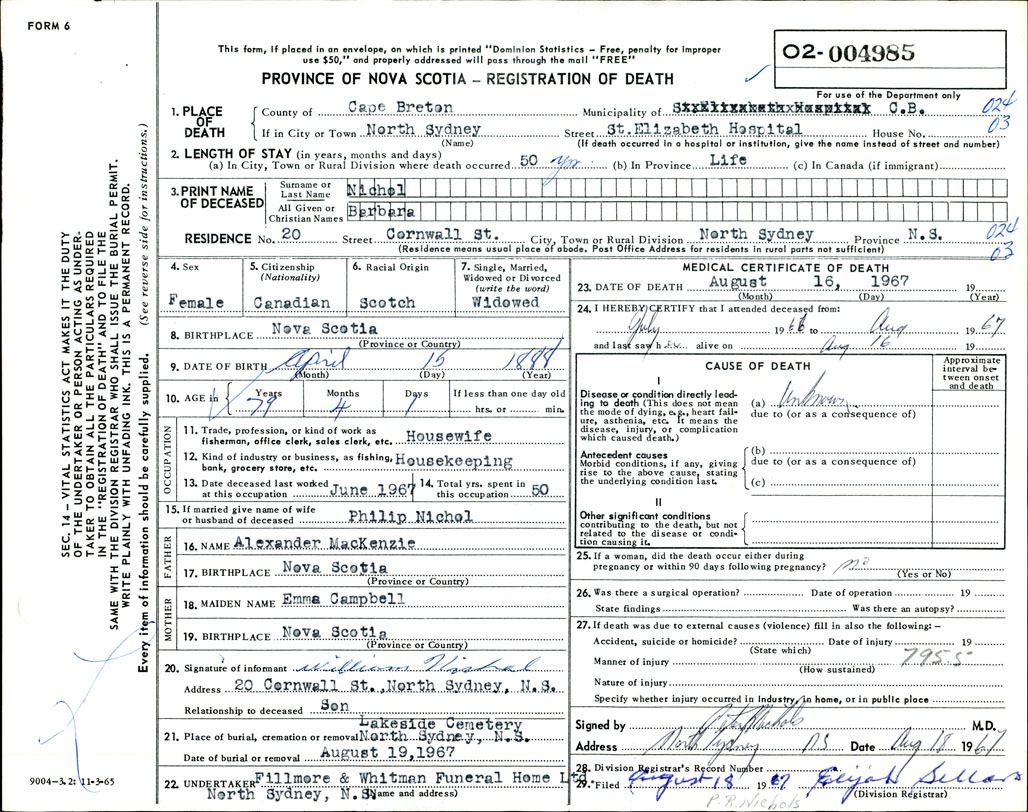 FORM 6
This form, if placed in an envelope, on which is printed "Dominion Statistics – Free, penalty for improper
use $50," and properly addressed will pass through the mail "FREE"
PROVINCE OF NOVA SCOTIA – REGISTRATION OF DEATH
O2-004985
For use of the Department only
024
03
1. PLACE OF DEATH
County of Cape Breton Municipality of StxElizabethxHospital C.B.
If in City or Town North Sydney Street St.Elizabeth Hospital House No.
(Name) (If death occurred in a hospital or institution, give the name instead of street and number)
2. LENGTH OF STAY (in years, months and days)
(a) In City, Town or Rural Division where death occurred 50 yrs. (b) In Province Life (c) In Canada (if immigrant)
3. PRINT NAME OF DECEASED
Surname or Last Name Nichol
All Given or Christian Names Barbara
RESIDENCE No. 20 Street Cornwall St. City, Town or Rural Division North Sydney Province N.S.
(Residence means usual place of abode. Post Office Address for residents in rural parts not sufficient)
024
03
4. Sex
Female
5. Citizenship
(Nationality)
Canadian
6. Racial Origin
Scotch
7. Single, Married,
Widowed or Divorced
(write the word)
Widowed
8. BIRTHPLACE Nova Scotia
(Province or Country)
9. DATE OF BIRTH April 15 1888
(Month) (Day) (Year)
10. AGE in Years Months Days If less than one day old
79 4 1 hrs. or min.
OCCUPATION
11. Trade, profession, or kind of work as
fisherman, office clerk, sales clerk, etc. Housewife
12. Kind of industry or business, as fishing,
bank, grocery store, etc. Housekeeping
13. Date deceased last worked
at this occupation June 1967
14. Total yrs. spent in
this occupation 50
15. If married give name of wife
or husband of deceased Philip Nichol
FATHER
16. NAME Alexander MacKenzie
17. BIRTHPLACE Nova Scotia
(Province or Country)
MOTHER
18. MAIDEN NAME Emma Campbell
19. BIRTHPLACE Nova Scotia
(Province or Country)
20. Signature of informant William Nichol
Address 20 Cornwall St., North Sydney, N.S.
Relationship to deceased Son
Lakeside Cemetery
21. Place of burial, cremation or removal North Sydney, N.S.
Date of burial or removal August 19,1967
22. UNDERTAKER Fillmore & Whitman Funeral Home Ltd.
North Sydney, N.S. (Name and address)
MEDICAL CERTIFICATE OF DEATH
23. DATE OF DEATH August 16, 1967 19
(Month) (Day) (Year)
24. I HEREBY CERTIFY that I attended deceased from:
July 1966 to Aug 1967
and last saw her alive on Aug 16 19
CAUSE OF DEATH
Approximate
interval be-
tween onset
and death
I
Disease or condition directly lead-
ing to death (This does not mean
the mode of dying, e.g., heart fail-
ure, asthenia, etc. It means the
disease, injury, or complication
which caused death.)
(a) Unknown
due to (or as a consequence of)
Antecedent causes
Morbid conditions, if any, giving
rise to the above cause, stating
the underlying condition last.
(b)
due to (or as a consequence of)
(c)
II
Other significant conditions
contributing to the death, but not
related to the disease or condi-
tion causing it.
25. If a woman, did the death occur either during
pregnancy or within 90 days following pregnancy? no
(Yes or No)
26. Was there a surgical operation? Date of operation 19
State findings Was there an autopsy?
27. If death was due to external causes (violence) fill in also the following: –
Accident, suicide or homicide? Date of injury 19
(State which)
795.5
Manner of injury
(How sustained)
Nature of injury
Specify whether injury occurred in industry, in home, or in public place
Signed by Peter Nichols M.D.
Address North Sydney NS Date Aug 18 1967
28. Division Registrar's Record Number
29. Filed August 18 1967 Elijah Sellars
(Division Registrar)
P.R. Nichols
SEC. 14 – VITAL STATISTICS ACT MAKES IT THE DUTY
OF THE UNDERTAKER OR PERSON ACTING AS UNDER-
TAKER TO OBTAIN ALL THE PARTICULARS REQUIRED
IN THE "REGISTRATION OF DEATH" AND TO FILE THE
SAME WITH THE DIVISION REGISTRAR WHO SHALL ISSUE THE BURIAL PERMIT.
WRITE PLAINLY WITH UNFADING INK. THIS IS A PERMANENT RECORD.
Every item of information should be carefully supplied. (See reverse side for instructions.)
9004-3.2: 11-3-65